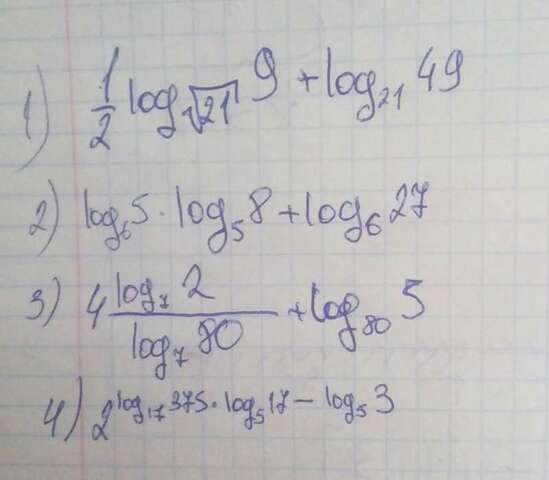 1) 1/2 log_√21 9 + log_21 49
2) log_6 5 · log_5 8 + log_6 27
3) 4 log_7 2 / log_7 80 + log_80 5
4) 2^(log_17 375 · log_5 17 - log_5 3)